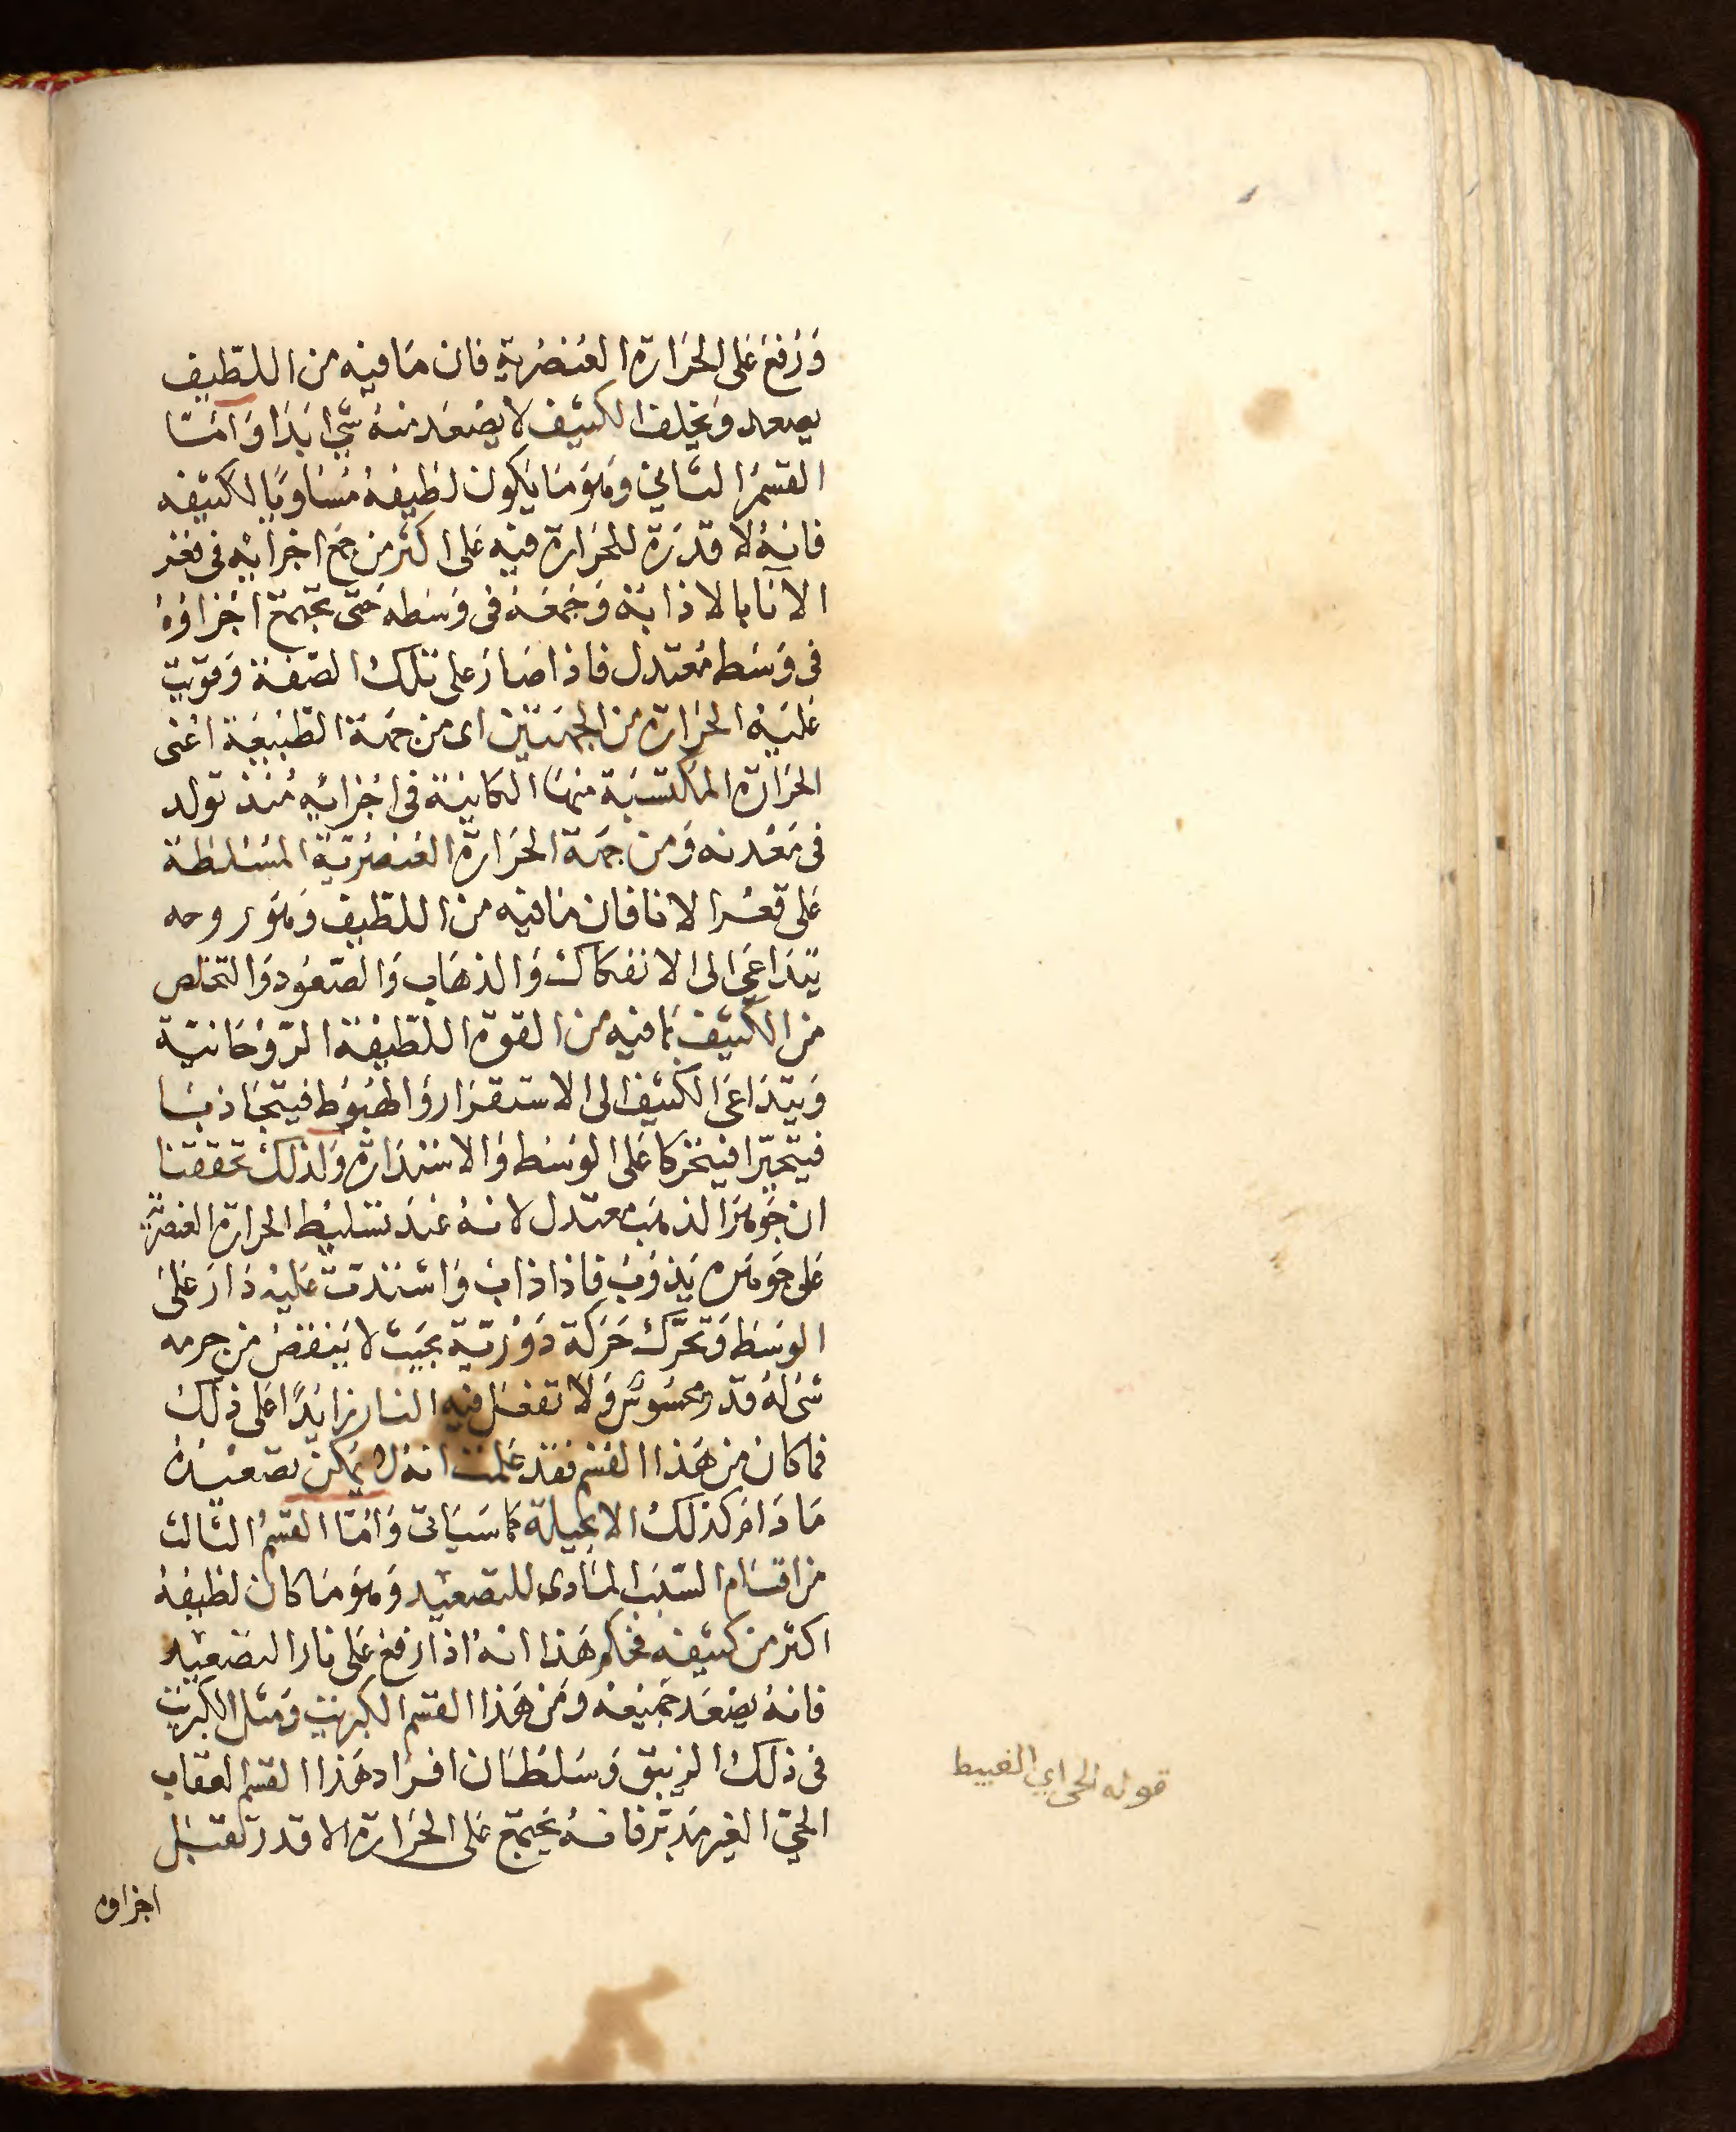 وَرُفعَ عَلى الحَرَارة العُنصُريةِ فان مَا فيْه من اللطيف
يصعد وَيخلف الكثيف لا يصْعَد منهُ شيْ ابَدَا وَامَّا
القسْمُ الثاني وَهوَ مَا يَكون لطيفهُ مُسَاويًا لكثيفه
فانهُ لا قدرَة للحَرَارة فيْه عَلى اكثر من جمع اجْزايْه فى قعْر
الانآ بالاذابَة وَجَمعَهُ فى وَسَطه حَتى تجْتمعَ اجْزَاؤهُ
فى وَسَط مُعتدل فاذا صَارَ على تلكَ الصّفة وَقويَتْ
عَليْه الحَرَارة من الجهَتَيْن اى من جهَة الطّبيعَة اعْنى
الحَرارة المكتسَبَة منهَا الكاينَة فى اجْزائِه مُنذ تولد
فى مَعْدنه وَمن جهَة الحَرَارة العُنصُريَّة المسَلطَة
عَلى قعْر الانا فان مَا فيْه من اللطيف وَهوَ روحه
يَتدَاعَى الى الانفكاك وَالذهَاب وَالصّعُود وَالتخلص
من الكثيف بمَا فيْه من القوة اللطيفة الرّوْحَانيّة
وَيَتدَاعَى الكثيف الى الاستقرَار وَالهبُوط فيتجَاذبَا
فيتحيّرا فيتحركا عَلى الوسَط وَالاسْتدَارة وَلذلكَ تحققنا
ان جَوهَرَ الذهَب معتدل لانهُ عندَ تسْليْط الحرارة العنصريّة
عَلى جَوهَره يَذوْبُ فاذا ذابَ وَاشتدتْ عَليْه دَارَ عَلىَ
الوسَط وَتحرَّكَ حَرَكة دَوْريّة بحَيث لا يَنقصُ من جرمه
شى لهُ قدر محسُوسٌ وَلا تفعَل فيْه النار زايدًا عَلى ذلكَ
فما كان من هَذا القسْم فقد عَلمْتَ انهُ لا يُمكن تصعيْدهُ
مَا دَامَ كذلكَ الا بحيلة كما سَيَاتى وَامّا القسْمُ الثالث
من اقسَام السّبَب المادى للتصعيْد وَهوَ مَا كان لطيفهُ
اكثر من كثيفه فحكم هَذا انهُ اذا رُفعَ عَلى نار التصْعيْد
فانهُ يصْعَد جَميْعهُ وَمن هَذا القسْم الكبريت وَمثل الكبريت
فى ذلكَ الزيبق وَسَلطَان افراد هَذا القسم العقاب
الحىّ الغير مُدَبّر فانهُ يَجْتمع عَلى الحَرَارة الا قدر تقبل
اجزاوه
قوله الحى اي الغبيط